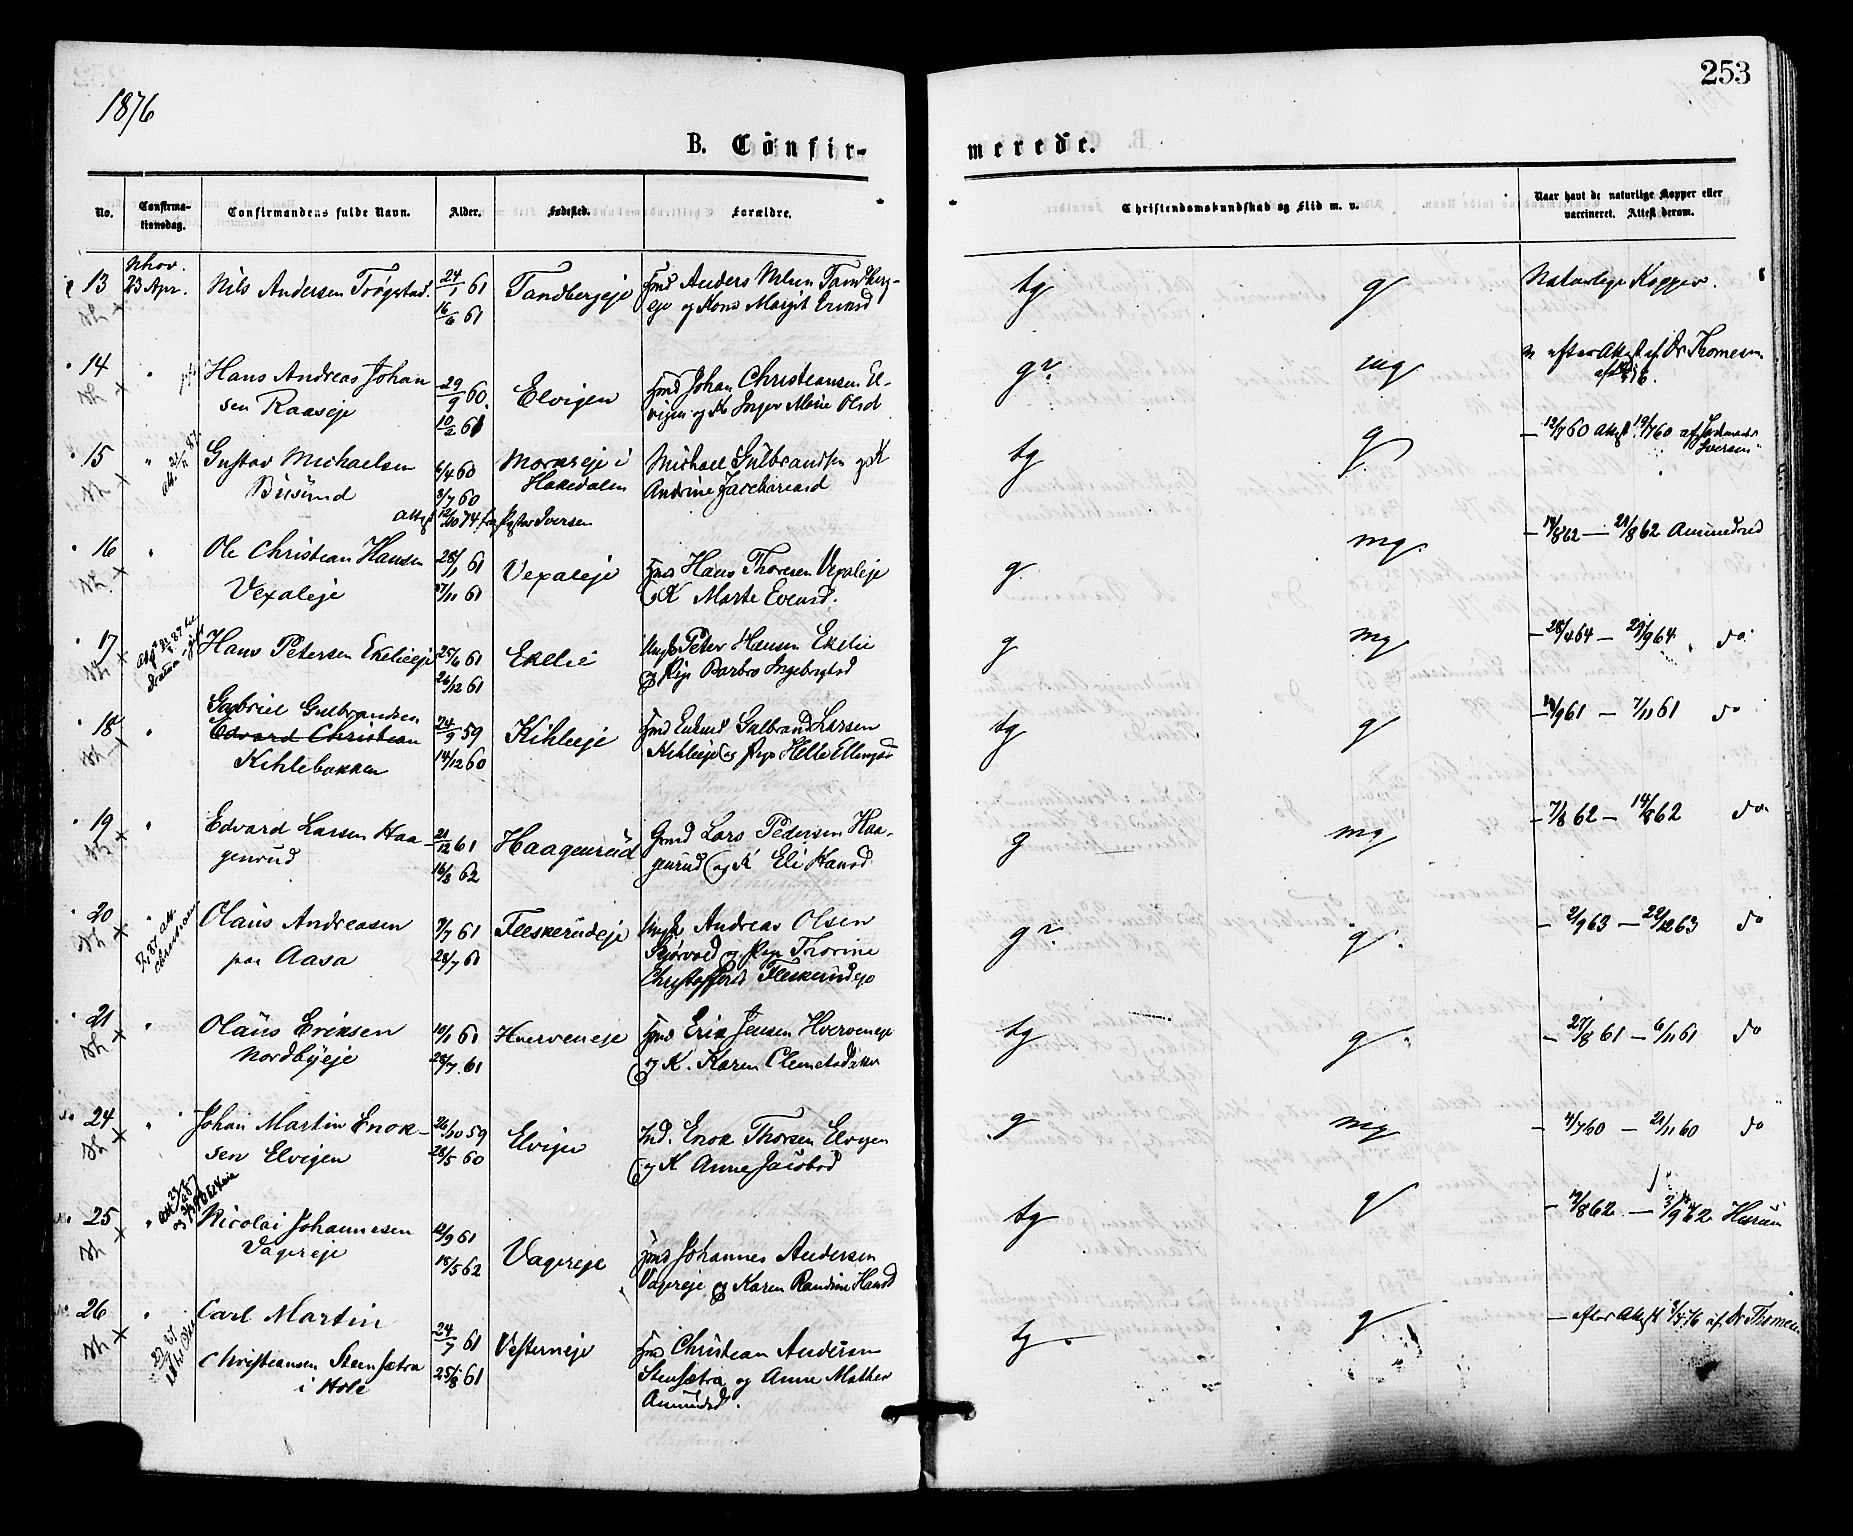 1876
253
B. Confir-
merede.
No.
Confirma-
tionsdag.
Confirmandens fulde Navn.
Alder.
Fødested.
Forældre.
Christendomskundskab og Flid m. v.
Naar havt de naturlige Kopper eller
vaccineret. Attest derom.
13 23 Apr. Nils Andersen Trøgstad. 24/1 61 Tandbergeje Fmd Anders Nilsen Tandberg-
16/6 61 eje og Kone Margit tg g Naturlige Kopper.
14 " Hans Andreas Johan
sen Raaseje 29/9 60. Elvigen Fmd Johan Christiansen El-
10/2 61 vigen og K Inger Marie Olsd g? mg efter Attest af Dr Thomesen
15 " Gustav Michaelsen 6/4 60 i Michael Gulbrandsen og K
Busund 3/7 60 Hakedalen Andrine Zachariasd tg g 12/7 60 Attest 19/7 60 af
Attest 12/10 74 fra Pastor Iversen Iversen
16 " Ole Christian Hansen 28/1 61 Vexaleje Fmd Hans Thoresen Vexaleje
Vexaleje 17/11 61 og K Marte Evensd. g mg. 14/8 62 — 21/8 62 Amundrud
17 Hans Petersen Ekelieeje 25/6 61 Ekelie Ungk Peter Hansen Ekelie
26/12 61 og Pige Barbro Ingebrigtsd g mg 28/4 64 — 29/9 64 do
18 " Gabriel Gulbrandsen
Edvard Christian 24/9 59 Kihleeje Fmd Gulbrand Larsen
Kihlebakken 14/12 60 Kihleeje og Pige Helle Ellingsd tg g 9 61 — 7/11 61 do
19 " Edvard Larsen Haa- 21/12 61 Haagenrud Gmd Lars Pedersen Haa-
genrud 16/3 62 genrud og K Eli Hansd g mg 7/8 62 — 14/8 62 do
20 " Olaus Andreasen 7 61 Fleskerudeje Ungk Andreas Olsen
paa Aasa 28/7 61 og Pige Thorine
Christoffersd Fleskerudeje g? g. 2/9 63 — 22/12 63 do
21 " Olaus Eriksen 10/1 60 Hverveneje Fmd Erik Jensen Hverveneje
Nordbyeje 28/7 61 og K. Karen Clemetsdatter tg g 27/8 61 — 6/11 61 do
24 " Johan Martin Enok- 26/10 59 Elvigen Ind. Enok Thorsen Elvigen
sen Elvigen 28/5 60 og K Anne Jacobsd g mg 4/7 60 — 21/11 60 do
25 " Nicolai Johannesen 12/9 61
Vagereje 18/5 62 Vagereje Fmd Johannes Andersen
Vagereje og Karen Randine Hansd tg g 8 62 — 9 62
26 " Carl Martin 24/7 61 Vesterneje Fmd Christian Andersen
Christiansen Stensætra 25/8 61 Stensætra og Anne Mathea
i Hole Amundsd. tg. g — efter Attest 76 af Dr Thomesen